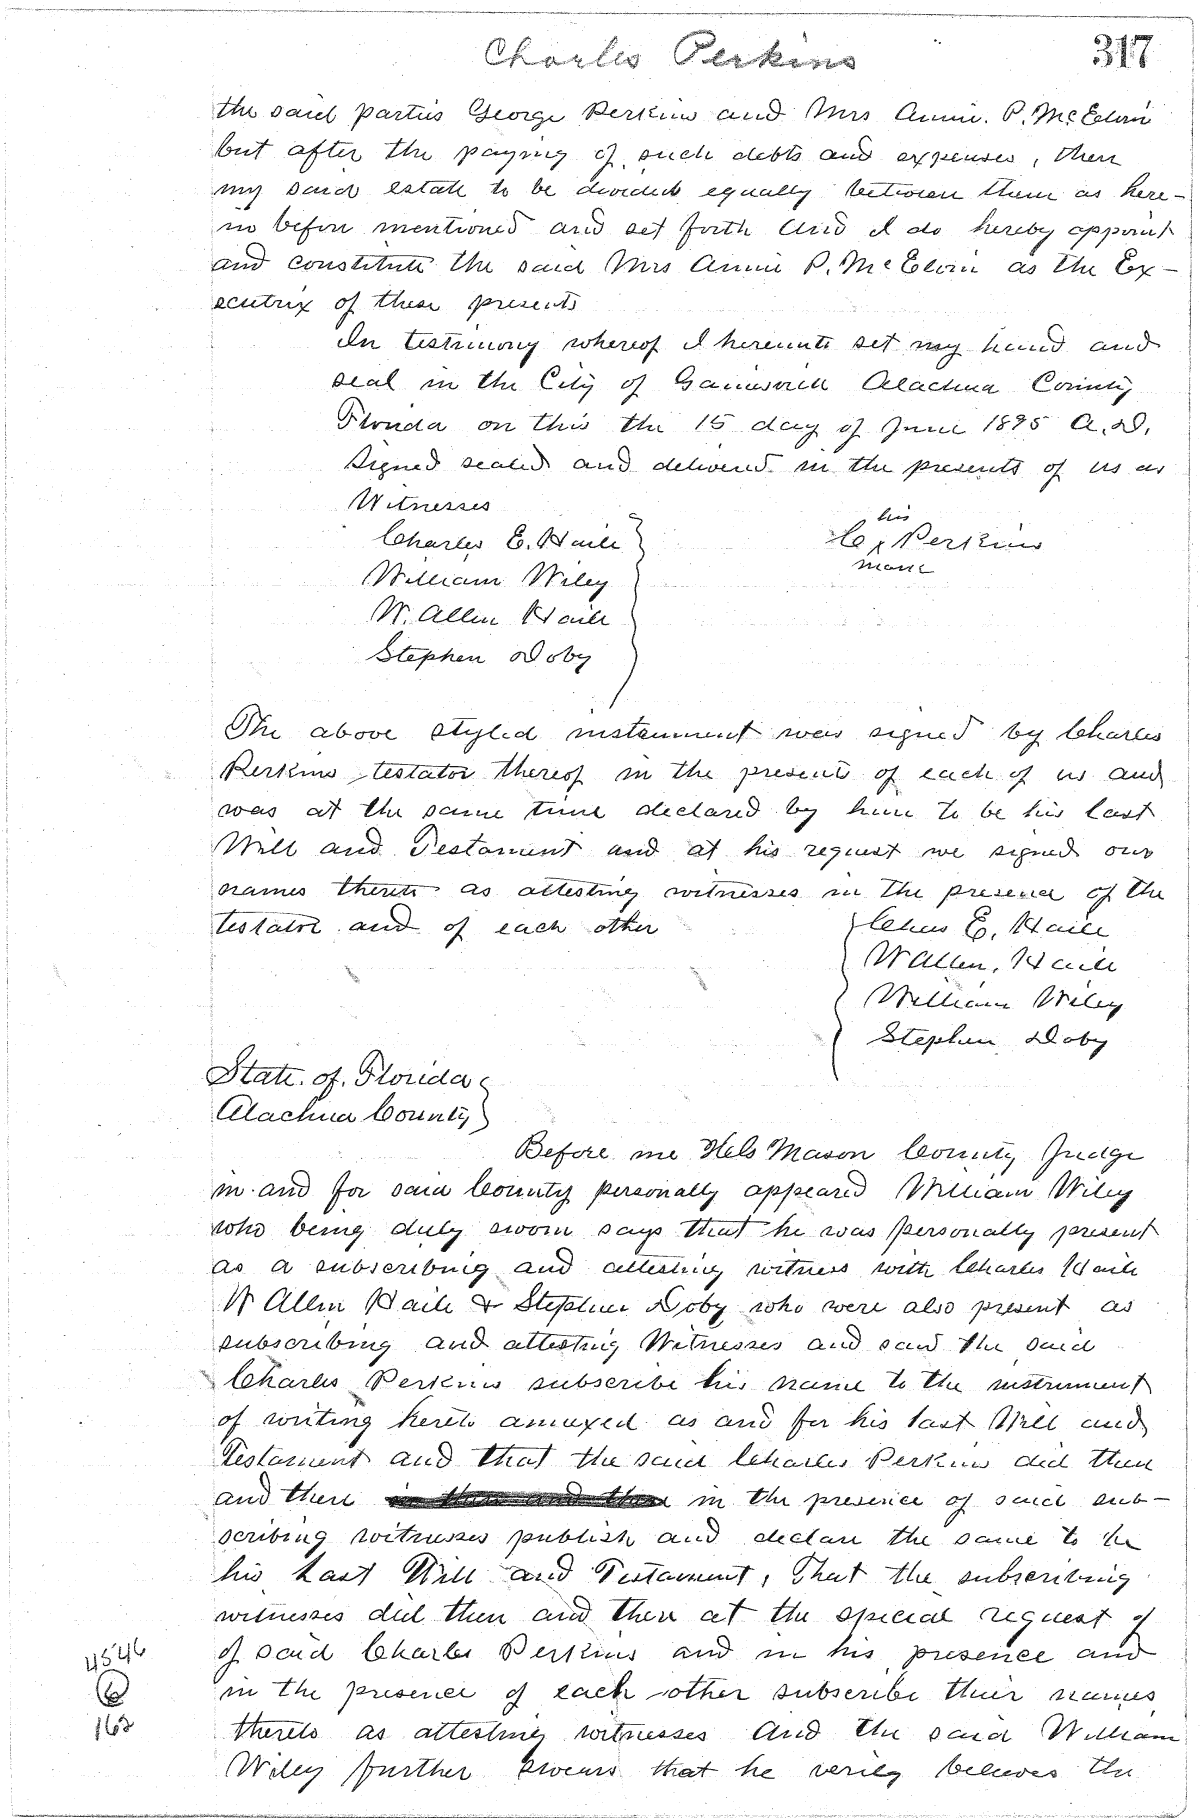 Charles Perkins
317
the said parties George Perkins and Mrs Annie. P. McElvin
but after the paying of such debts and expenses, then
my said estate to be divided equally between them as here-
in before mentioned and set forth And I do hereby appoint
and constitute the said Mrs Annie P. McElvin as the Ex-
ecutrix of these presents
In testimony whereof I hereunto set my hand and
seal in the City of Gainesville Alachua County
Florida on this the 15 day of June 1895 A.D.
Signed sealed and delivered in the presents of us as
Witnesses
his
Charles E. Haile
C x Perkins
mark
William Wiley
W. Allen Haile
Stephen Doby
The above styled instrument was signed by Charles
Perkins testator thereof in the presents of each of us and
was at the same time declared by him to be his last
Will and Testament and at his request we signed our
names thereto as attesting witnesses in the presence of the
testator and of each other
Chas E. Haile
W Allen. Haile
William Wiley
Stephen Doby
State of Florida
Alachua County
Before me Mason County Judge
in and for said County personally appeared William Wiley
who being duly sworn says that he was personally present
as a subscribing and attesting witness with Charles Haile
W Allen Haile & Stephen Doby who were also present as
subscribing and attesting Witnesses and saw the said
Charles Perkins subscribe his name to the instrument
of writing hereto annexed as and for his last Will and
Testament and that the said Charles Perkins did then
and there in the presence of said sub-
scribing witnesses publish and declare the same to be
his Last Will and Testament, That the subscribing
witnesses did then and there at the special request of
of said Charles Perkins and in his presence and
in the presence of each other subscribe their names
thereto as attesting witnesses And the said William
Wiley further swears that he verily believes the
4546
6
162